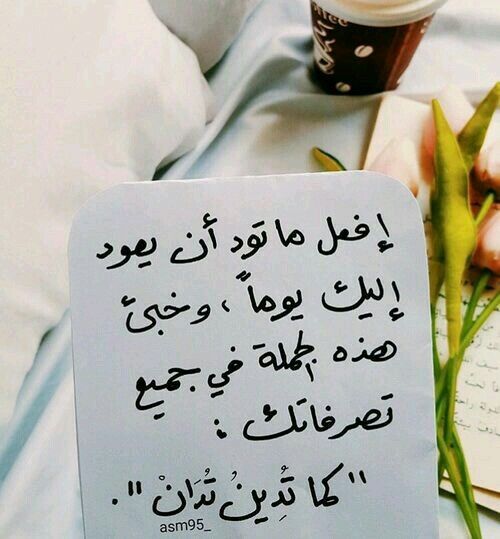 إفعل ما تود أن يعود
إليك يوماً ، و خبئ
هذه الجملة في جميع
تصرفاتك :
"كما تُدِينُ تُدَانْ" .
asm95_